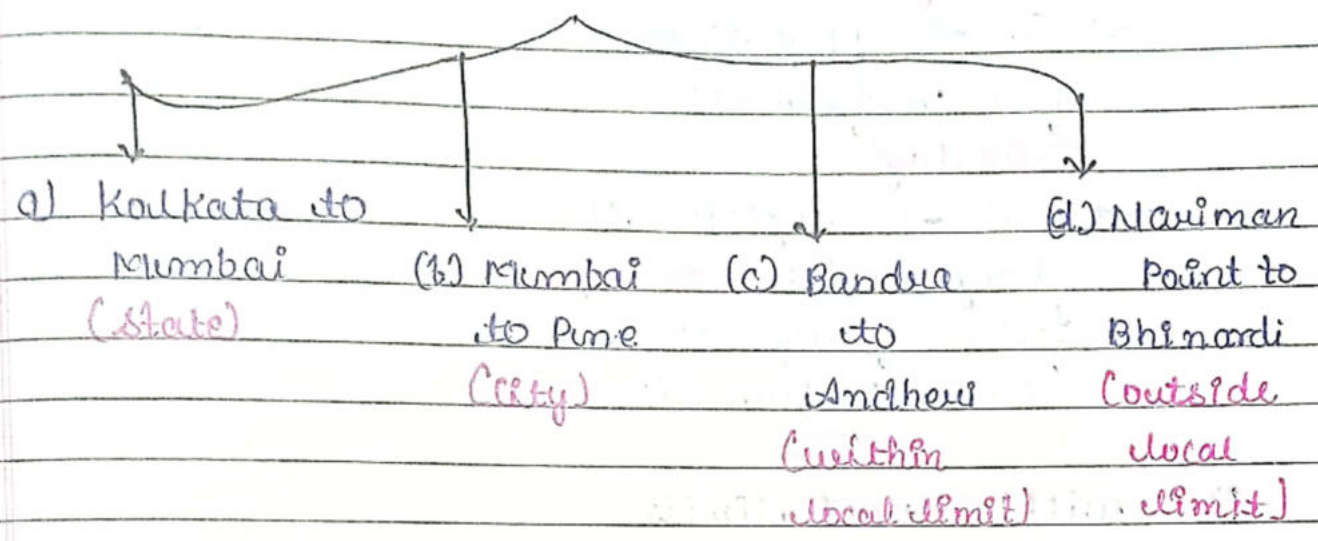 a) Kolkata to
Mumbai
(state)
(b) Mumbai
to Pune
(city)
(c) Bandra
to
Andheri
(within
local limit)
(d.) Nariman
Point to
Bhinardi
(outside
local
limit)